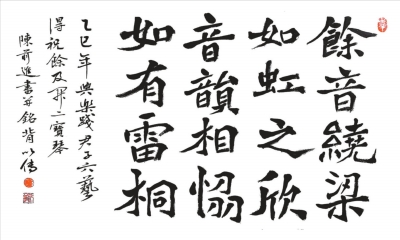 餘音繞梁
如虹之欣
音韻相惱
如有雷桐
乙巳年與樂踐君子六藝
得祝餘及昇二寶琴
陳前進書并銘背以傳